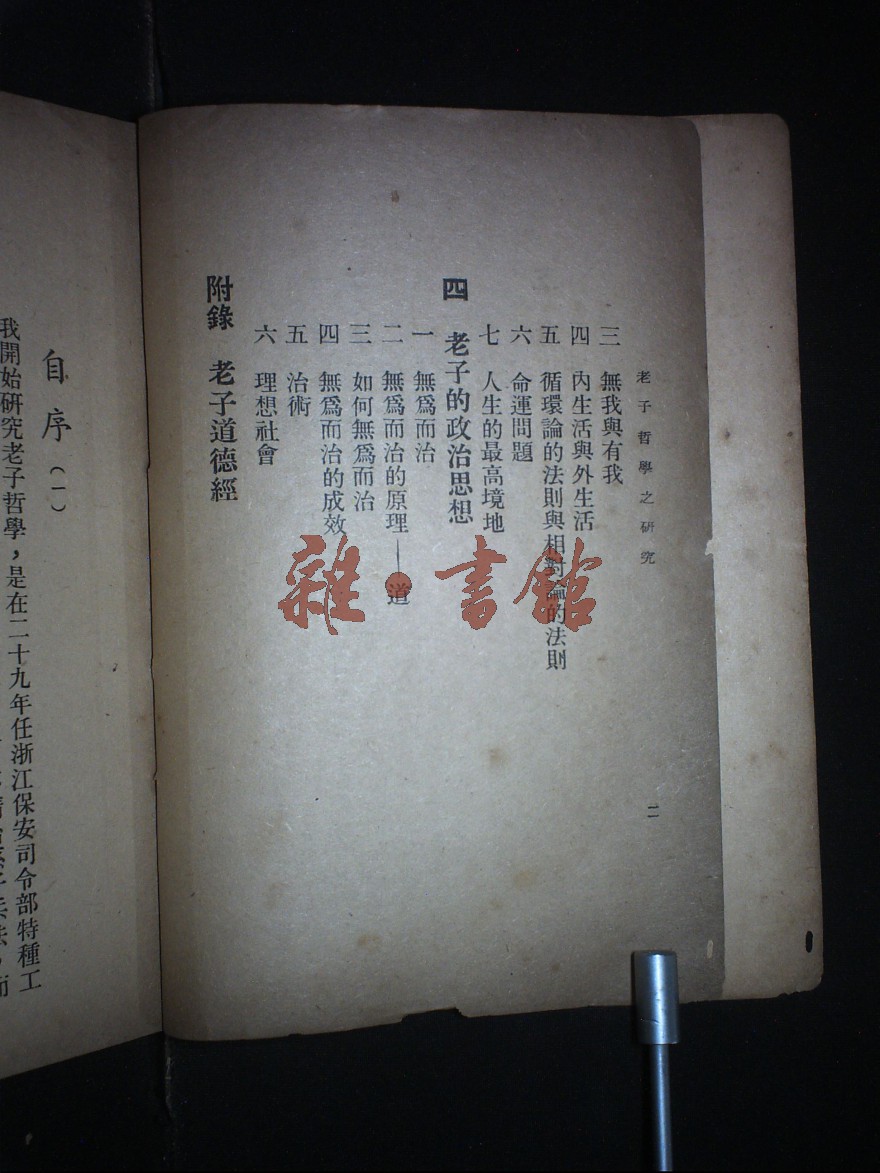 老子哲學之研究
二
三 無我與有我
四 內生活與外生活
五 循環論的法則與相對論的法則
六 命運問題
七 人生的最高境地
四 老子的政治思想
一 無爲而治
二 無爲而治的原理——道
三 如何無爲而治
四 無爲而治的成效
五 治術
六 理想社會
附錄 老子道德經
雜·書館
自序(一)
我開始研究老子哲學,是在二十九年任浙江保安司令部特種工